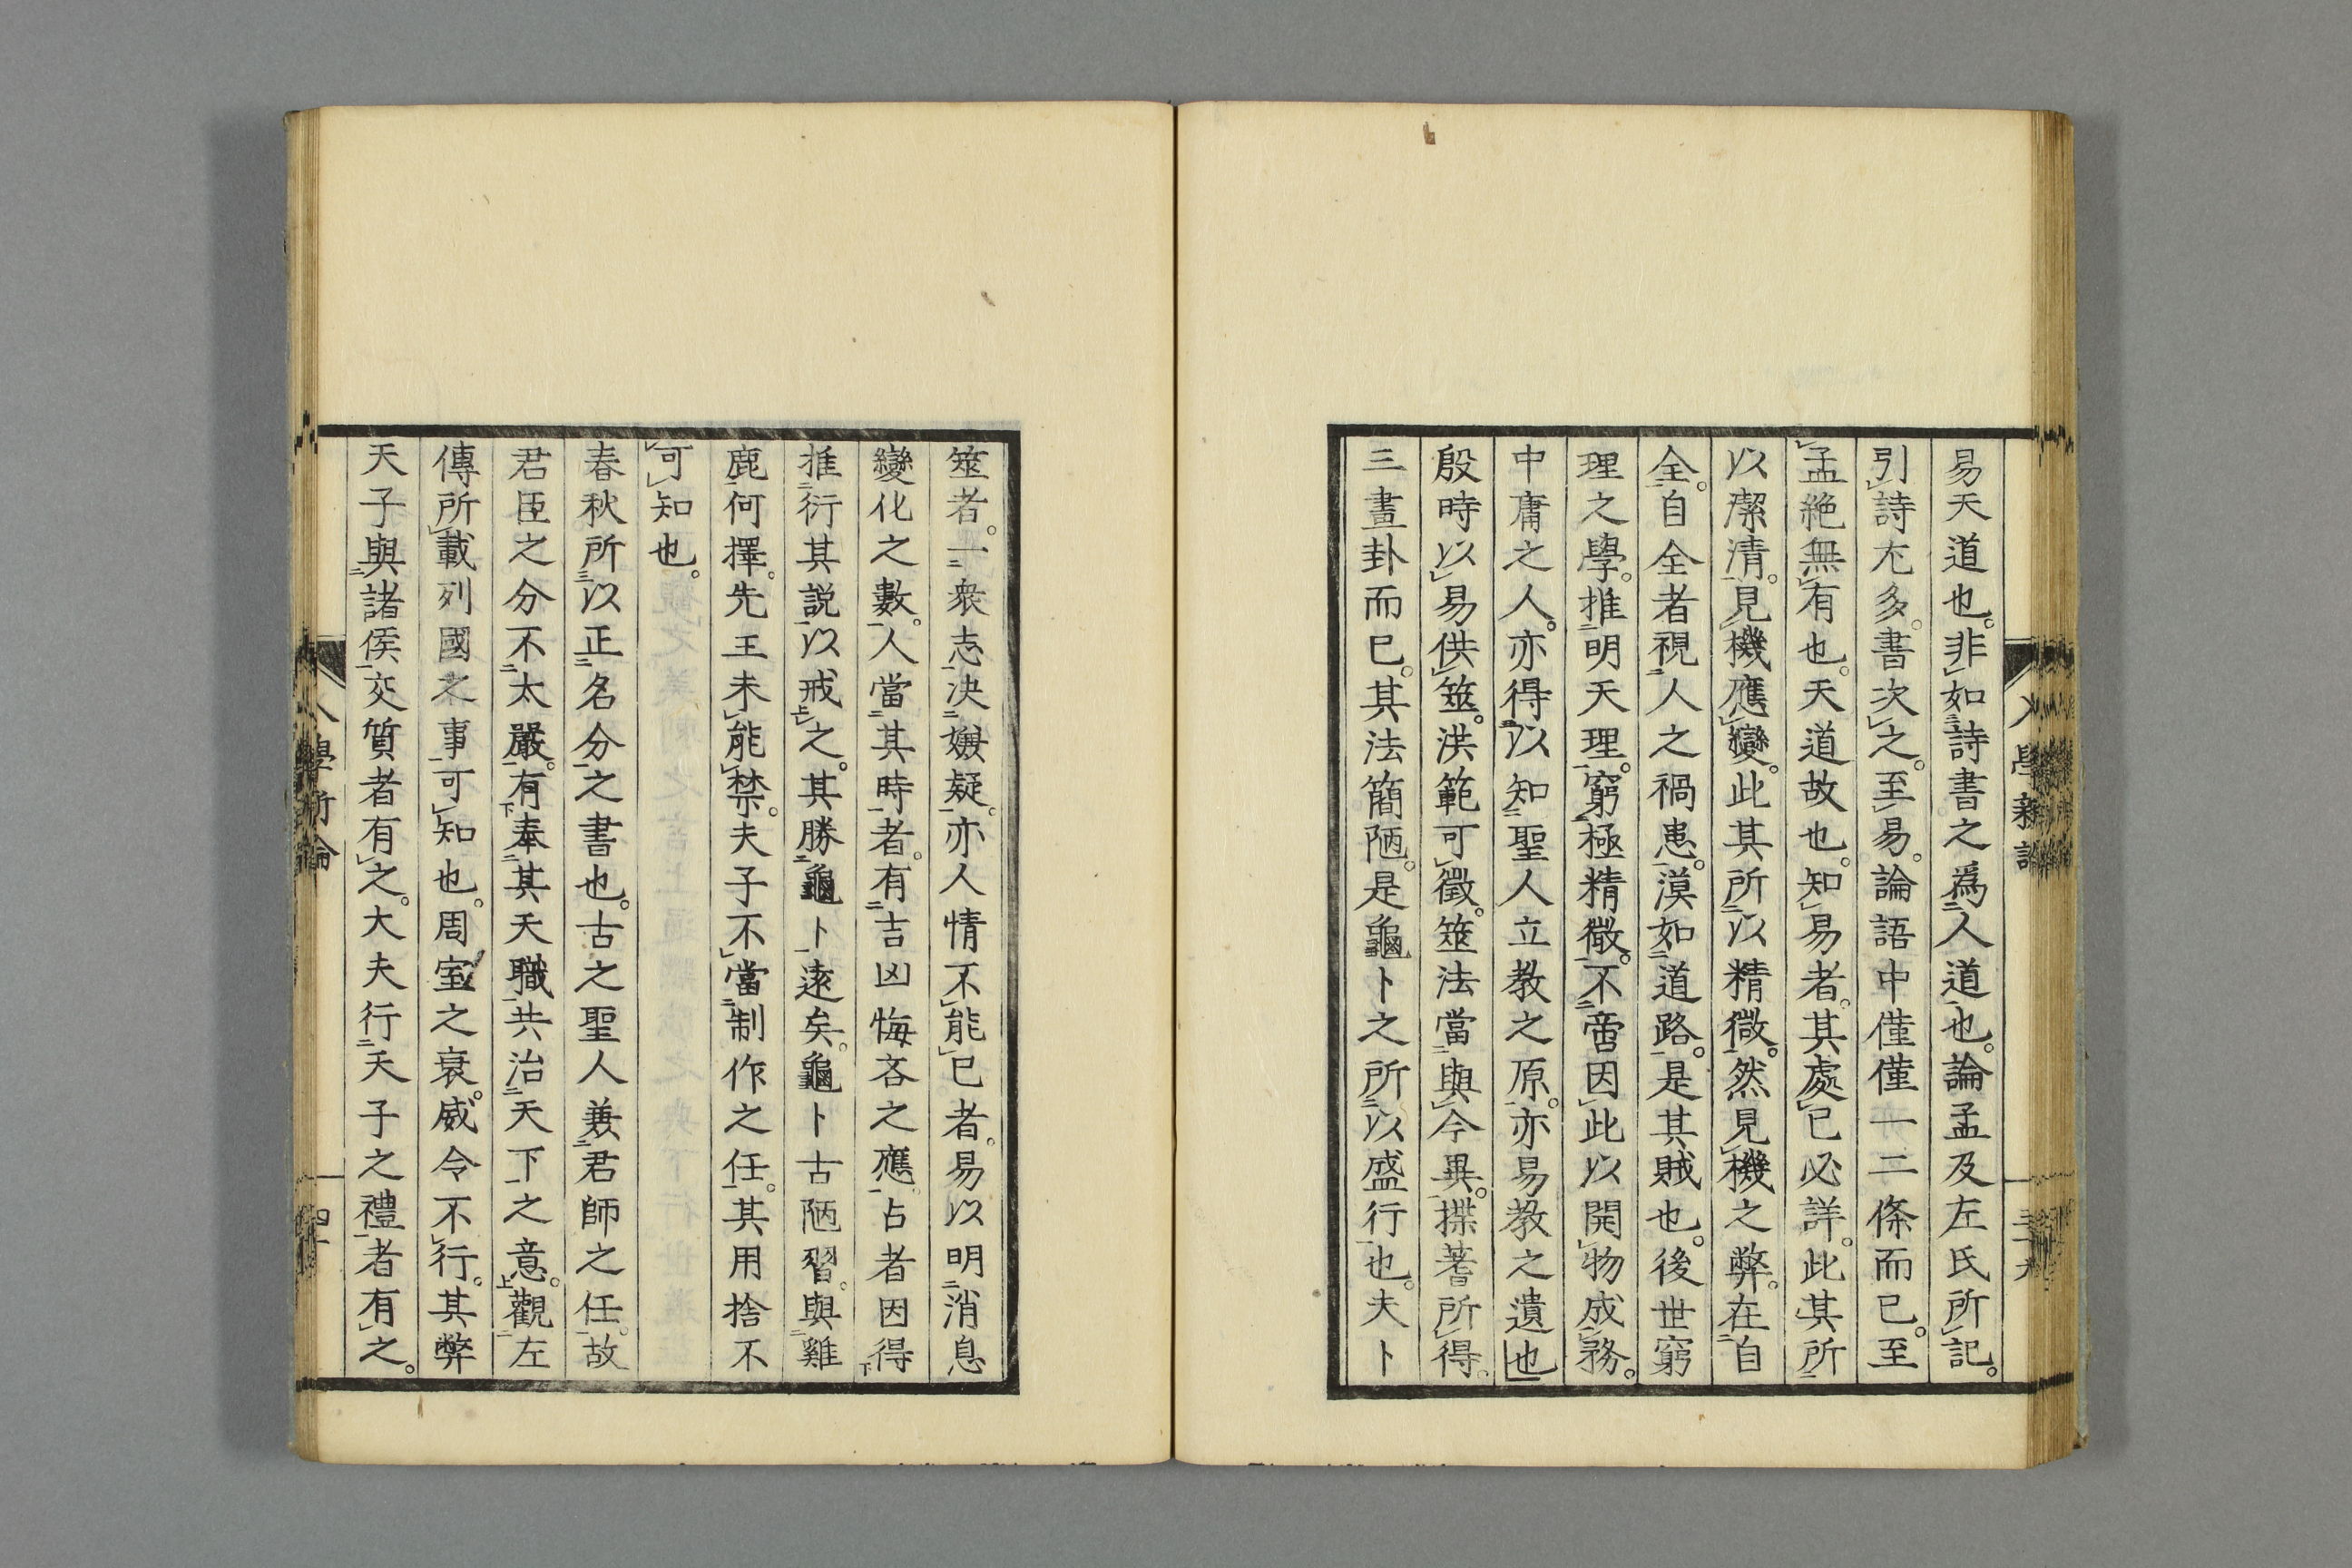 易天道也。非如詩書之爲人道也。論孟及左氏所記。
引詩尤多。書次之。至易。論語中僅僅一二條而已。至
孟絶無有也。天道故也。知易者。其處已必詳。此其所
以潔清。見機應變。此其所以精微。然見機之弊。在自
全。自全者視人之禍患。漠如道路。是其賊也。後世窮
理之學。推明天理。窮極精微。不啻因此以開物成務。
中庸之人。亦得以知聖人立教之原。亦易教之遺也
殷時以易供筮。洪範可徵。筮法當與今異。揲蓍所得。
三畫卦而已。其法簡陋。是龜卜之所以盛行也。夫卜
筮者。一衆志決嫌疑。亦人情不能已者。易以明消息
變化之數。人當其時者。有吉凶悔吝之應。占者因得
推衍其説以戒之。其勝龜卜遠矣。龜卜古陋習。與雞
鹿何擇。先王未能禁。夫子不當制作之任。其用捨不
可知也。
春秋所以正名分之書也。古之聖人兼君師之任。故
君臣之分不太嚴。有奉其天職共治天下之意。觀左
傳所載列國之事可知也。周室之衰。威令不行。其弊
天子與諸侯交質者有之。大夫行天子之禮者有之。